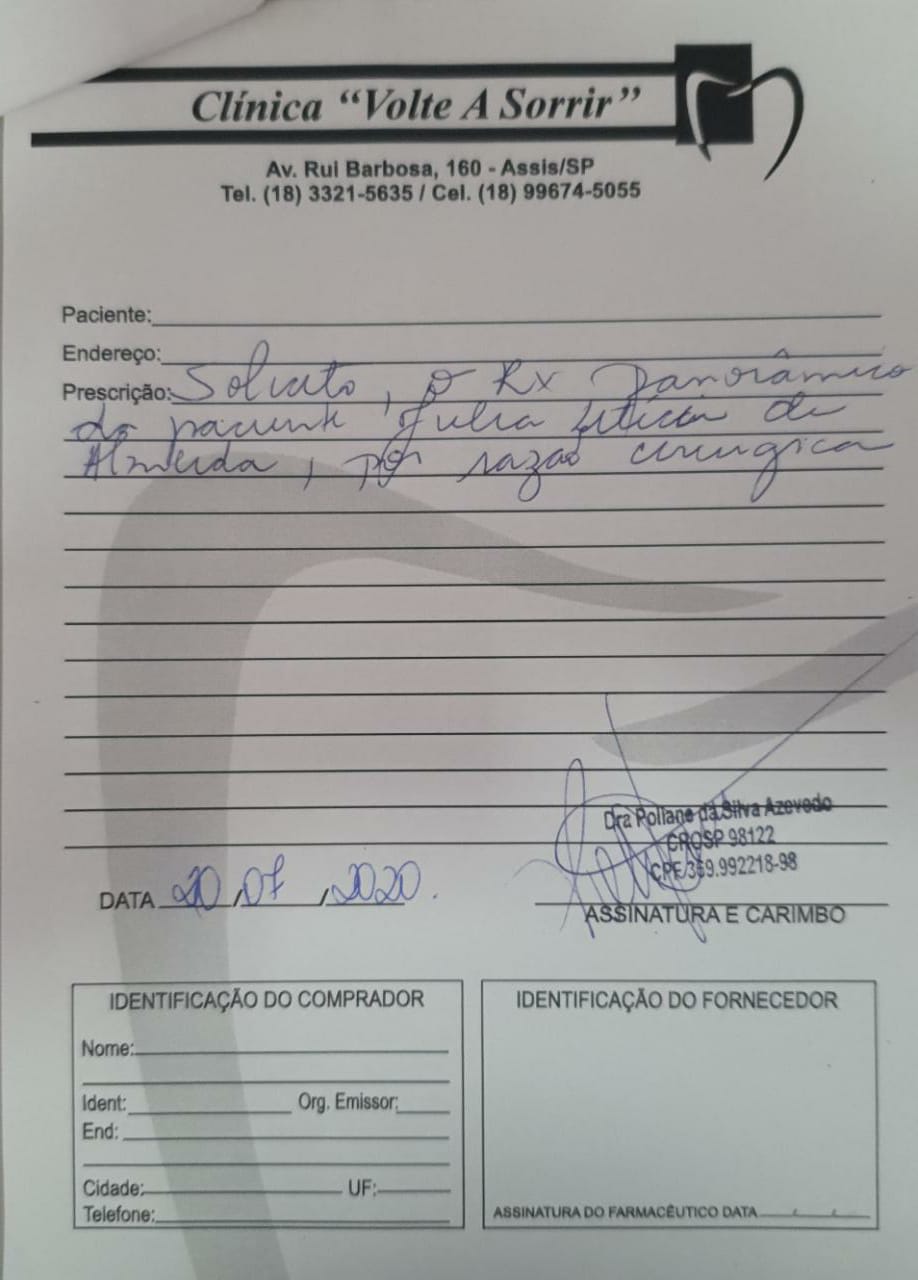 Clínica “Volte A Sorrir”
Av. Rui Barbosa, 160 - Assis/SP
Tel. (18) 3321-5635 / Cel. (18) 99674-5055
Paciente:
Endereço:
Prescrição: Solicito, o Rx Panorâmico
do paciente Julia Letícia de
Almeida, por razão cirurgica
Dra Poliane da Silva Azevedo
CROSP 98122
CPF 369.992218-98
DATA 20/07/2020.
ASSINATURA E CARIMBO
IDENTIFICAÇÃO DO COMPRADOR
Nome:
Ident: Org. Emissor:
End:
Cidade: UF:
Telefone:
IDENTIFICAÇÃO DO FORNECEDOR
ASSINATURA DO FARMACÊUTICO DATA